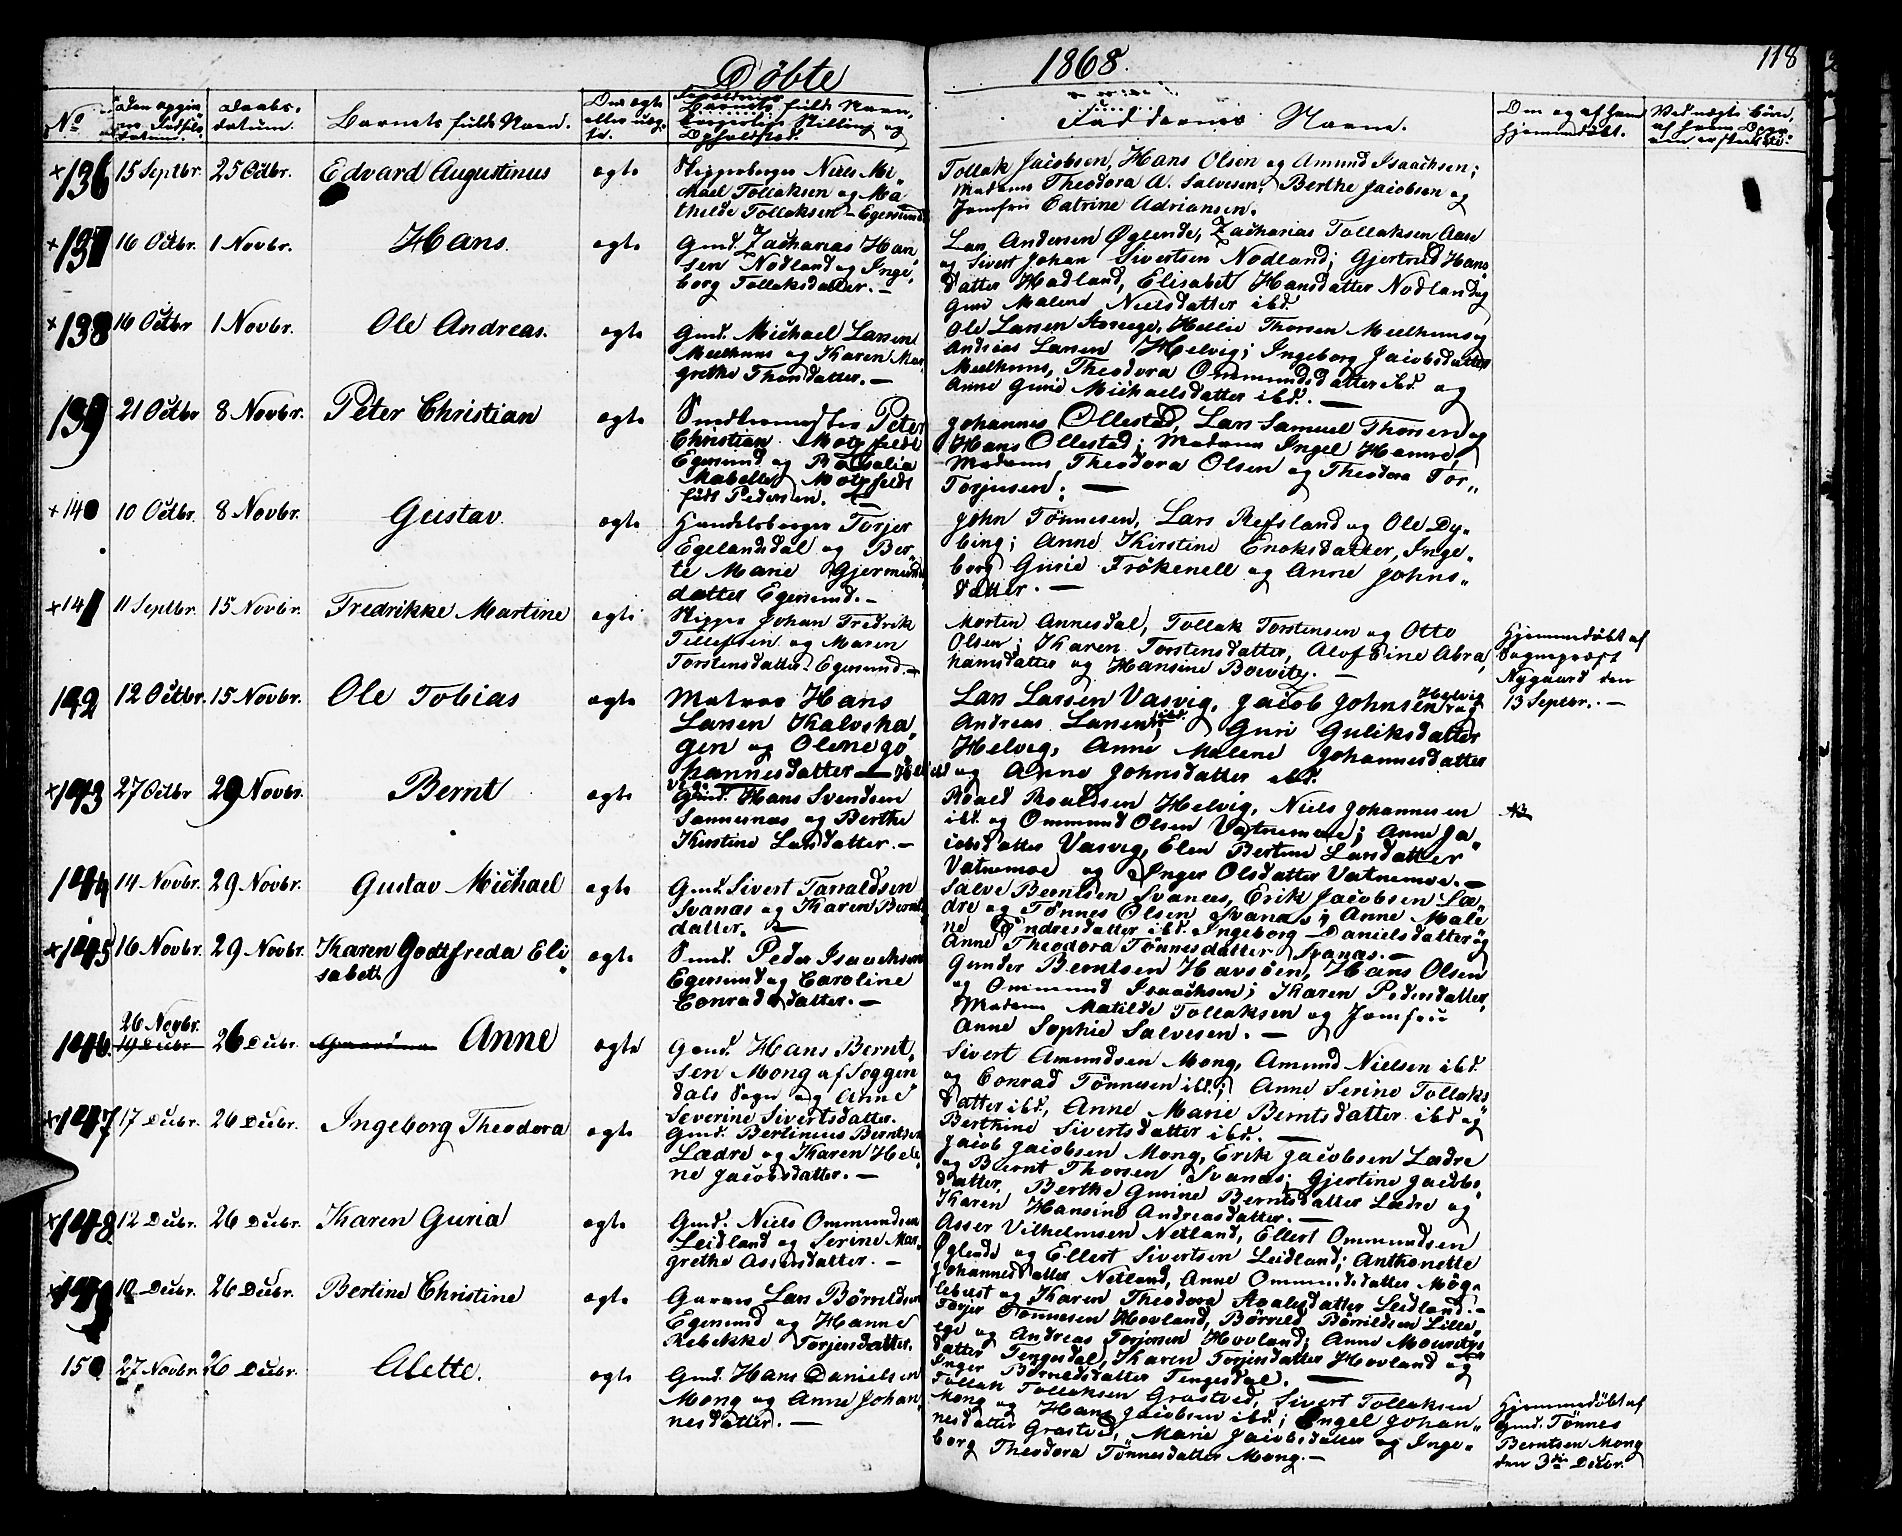 Döbte 1868. 118
No
Barnets fulde Navn.
Faddernes Navne.
Om og af hvem hjemmedöbt.
136 15 Septbr. 25 Octbr. Edvard Augustinus ægte
Skipperborger Niels Mi-
chael Tollaksen og Ma-
thilde Tollaksen - Egersund
Tollak Jacobsen, Hans Olsen og Amund Isaachsen;
Madame Theodora A. Salvesen, Berthe Jacobsen og
Jomfru Catrine Adriansen.
137 16 Octbr. 1 Novbr. Hans. ægte
Gmd. Zacharias Han-
sen Nodland og Inge-
borg Tollaksdatter. -
Lars Andersen Øglende, Zacharias Tollaksen Aase
og Sivert Johan Sivertsen Nodland; Gjertrud Hans-
datter Hadland, Elisabet Hansdatter Nodland og
Guri Malene Nielsdatter ibd.
138 16 Octbr 1 Novbr. Ole Andreas. ægte
Gmd. Michael Larsen
Meelhuus og Karen Mar-
grethe Thorsdatter. -
Ole Larsen Houge, Hellie Thorsen Meelhuus og
Andreas Larsen Helvig; Ingeborg Jacobsdatter
Meelhuus, Theodora Ommundsdatter ibd. og
Anne Gurie Michaelsdatter ibd. -
139 21 Octbr 8 Novbr. Peter Christian ægte
Peter
Christian Motzfeldt
Egersund og Rosalia
Mabella Motzfeldt
født Pedersen. -
Johannes Ollestad, Lars Samuel Thorsen og
Hans Ollestad; Madame Ingel Hamre,
Madame Theodora Olsen og Theodora Tor-
Torjusen. -
140 10 Octbr. 8 Novbr. Gustav. ægte
Handelsborger Torjer
Egelandsdal og Ber-
te Marie Gjermunds-
datter Egersund. -
John Tönnesen, Lars Refsland og Ole Dy-
bing; Anne Kirstine Enoksdatter, Inge-
borg Gurie Frökenell og Anne Johns-
datter. -
141 11 Septbr. 15 Novbr. Fredrikke Martine ægte
Skipper Johan Fredrik
Tillefsen og Maren
Torstensdatter. Egersund. -
Morten Annesdal, Tollak Torstensen og Otto
Olsen; Karen Torstensdatter, Alof Sine Abra-
hamsdatter og Hansine Bowitz. -
Hjemmedöbt af
Sognepræst
Nygaard den
13 Septbr. -
142 12 Octbr. 15 Novbr. Ole Tobias ægte
Matros Hans
Larsen Kalvsha-
gen og Olene Jo-
hannesdatter - Helvig
Lars Larsen Vasvig, Jacob Johnsen Helvig og
Andreas Larsen ibd.; Guri Guliksdatter
Helvig, Anne Malene Johannesdatter
og Anne Johnsdatter ibd.
143 27 Octbr 29 Novbr. Bernt ægte
Gmd. Hans Svendsen
Sannesnæs og Berthe
Kirstine Larsdatter. -
Roald Roaldsen Helvig, Niels Johannesen
ibd. og Ommund Olsen Vatnemoe; Anne Ja-
cobsdatter Vasvig, Elen Bertine Larsdatter
Vatnemoe og Inger Olsdatter Vatnemoe. -
144 14 Novbr. 29 Novbr. Gustav Michael ægte
Gmd. Sivert Tarraldsen
Svanæs og Karen Bernts-
datter. -
Salve Berntsen Svanæs, Erik Jacobsen Læ-
dre og Tönnes Olsen Svanæs; Anne Male-
ne Endresdatter ibd. Ingeborg Danielsdatter og
Anne Theodora Tönnesdatter Svanæs. -
145 16 Novbr. 29 Novbr. Karen Godtfreda Eli-
sabeth ægte
Smed. Peder Isaachsen
Egersund og Caroline
Conradsdatter. -
Gunder Berntsen Havsöen, Hans Olsen
og Ommund Isaachsen; Karen Pedersdatter,
Madame Matilde Tollaksen og Jomfru
Anne Sophie Salvesen. -
146. 26 Novbr. 26 Decbr. Anne ægte
Gmd. Hans Bernt-
sen Mong af Soggen-
dals Sogn og Anne
Severine Sivertsdatter.
Sivert Amundsen Mong, Amund Nielsen ibd.
og Conrad Tönnesen ibd.; Anne Serine Tollaks-
datter ibd., Anne Marie Berntsdatter ibd. og
Berthine Sivertsdatter ibd. -
147 17 Decbr. 26 Decbr. Ingeborg Theodora ægte
Gmd. Bertinius Berntsen
Lædre og Karen Hele-
ne Jacobsdatter. -
Jacob Jacobsen Mong, Erik Jacobsen Lædre
og Bernt Thorsen Svanæs; Gjertine Jacobs-
datter, Berthe Gurine Berntsdatter Lædre og
Karen Hansine Andreasdatter. -
148 12 Decbr. 26 Decbr. Karen Guria ægte
Gmd. Niels Ommundsen
Leidland og Serine Mar-
grethe Assersdatter. -
Asser Vilhelmsen Netland, Ellert Ommundsen
Øglende og Ellert Sivertsen Leidland; Anthonette
Johannesdatter Netland, Anne Ommundsdatter Mög-
lebust og Karen Theodora Avalsdatter Leidland. -
149 10 Decbr. 26 Decbr. Bertine Christine ægte
Garver Lars Börrildsen
Egersund og Hanne
Rebekke Torjersdatter.
Torjer Tönnesen Hovland, Börrild Börrildsen Lille-
ege og Andreas Torjersen Hovland; Anne Mouritz-
datter Tengesdal, Karen Torjersdatter Hovland og
Inger Börrildsdatter Tengesdal. -
150 27 Novbr. 26 Decbr. Alette. ægte
Gmd. Hans Danielsen
Mong og Anne Johan-
nesdatter. -
Tollak Tollaksen Grastved, Sivert Tollaksen
Mong og Hans Jacobsen ibd.; Engel Johan-
nesdatter Grastved, Marie Jacobsdatter og Inge-
borg Theodora Tönnesdatter Mong. -
Hjemmedöbt af
Gmd. Tönnes
Berntsen Mong
den 3die Decbr.